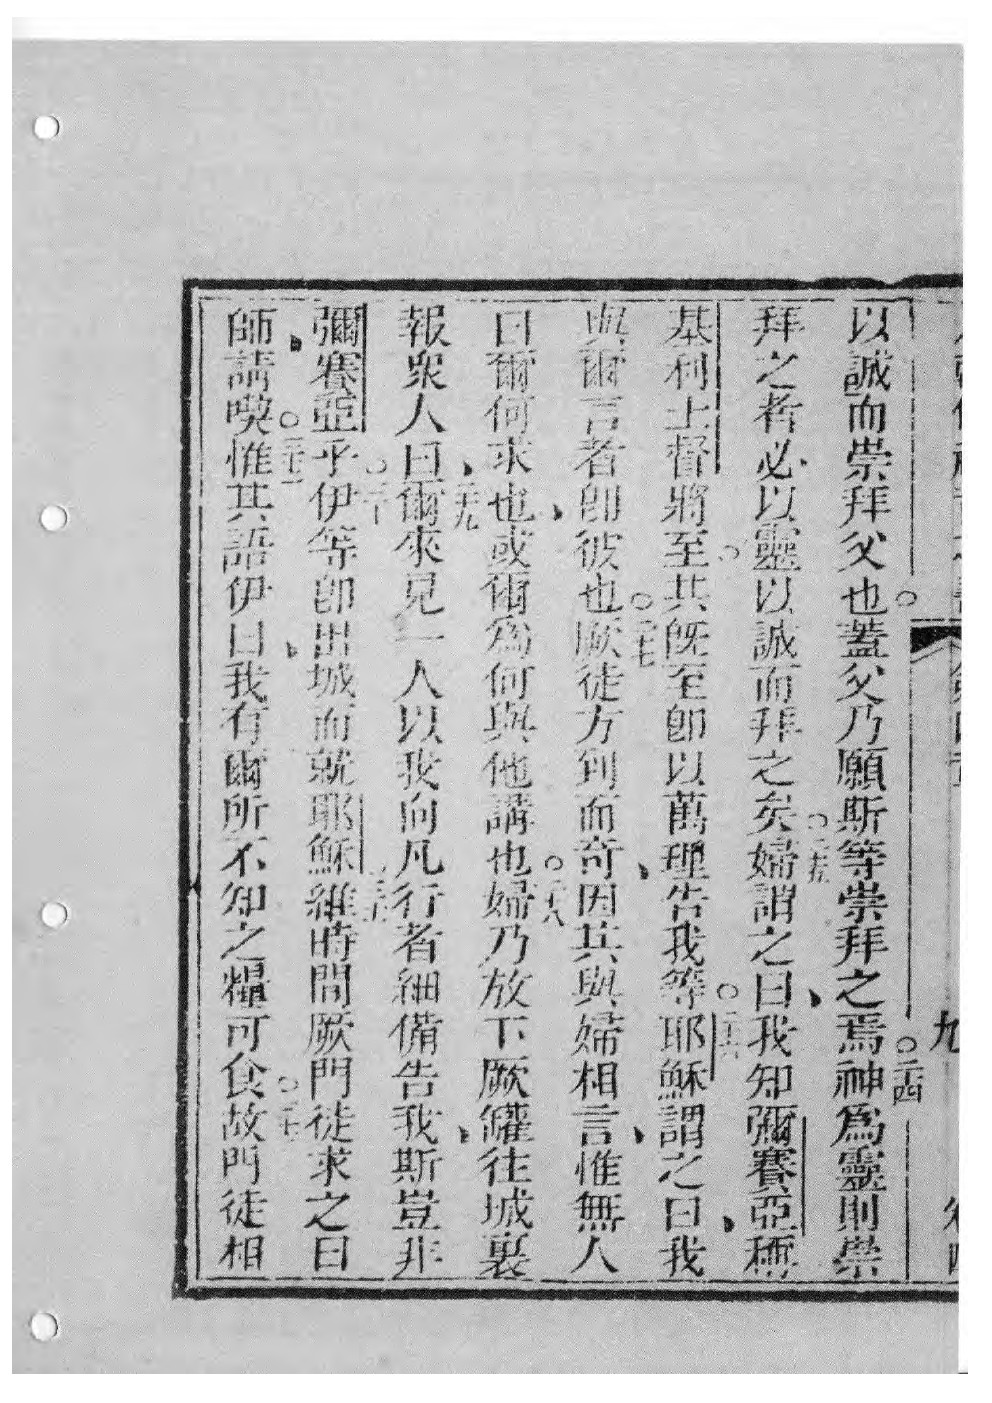 九
以誠而崇拜父也○蓋父乃願斯等崇拜之焉○二四神為靈則崇
拜之者必以靈以誠而拜之矣○二五婦謂之曰我知彌賽亞稱
基利士督將至○其旣至卽以萬理吿我等○二六耶穌謂之曰我
與爾言者卽彼也○二七厥徒方到而奇因其與婦相言惟無人
曰爾何求也或爾為何與他講也○二八婦乃放下厥罐往城裏
報衆人曰二九爾來見一人以我向凡行者細備告我斯豈非
彌賽亞乎○三十伊等卽出城而就耶穌三一維時間厥門徒求之曰
師請喫○三二惟其語伊曰我有爾所不知之糧可食○三三故門徒相